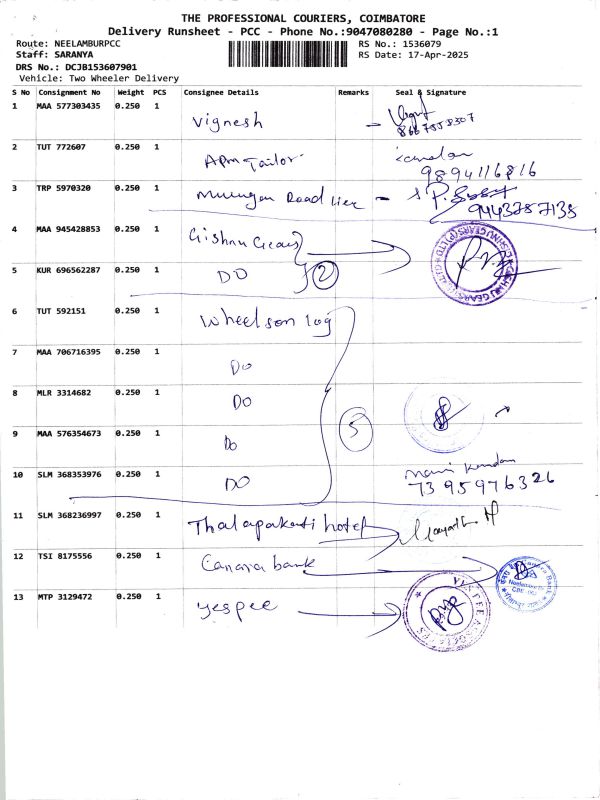 THE PROFESSIONAL COURIERS, COIMBATORE
Delivery Runsheet - PCC - Phone No.:9047080280 - Page No.:1
Route: NEELAMBURPCC
RS No.: 1536079
Staff: SARANYA
RS Date: 17-Apr-2025
DRS No.: DCJB153607901
Vehicle: Two Wheeler Delivery
S No Consignment No Weight PCS Consignee Details Remarks Seal & Signature
1 MAA 577303435 0.250 1 Vignesh
2 TUT 772607 0.250 1 APM Tailor
9894116816
3 TRP 5970320 0.250 1 Murugan
9443787135
4 MAA 945428853 0.250 1 Gishnu Gears
5 KUR 696562287 0.250 1 DO 2
6 TUT 592151 0.250 1 Wheelson log
7 MAA 706716395 0.250 1 Do
8 MLR 3314682 0.250 1 DO
9 MAA 576354673 0.250 1 Do 5
10 SLM 368353976 0.250 1 DO
7395976326
11 SLM 368236997 0.250 1 Thalapakati hotel
12 TSI 8175556 0.250 1 Canara bank
13 MTP 3129472 0.250 1 yespee